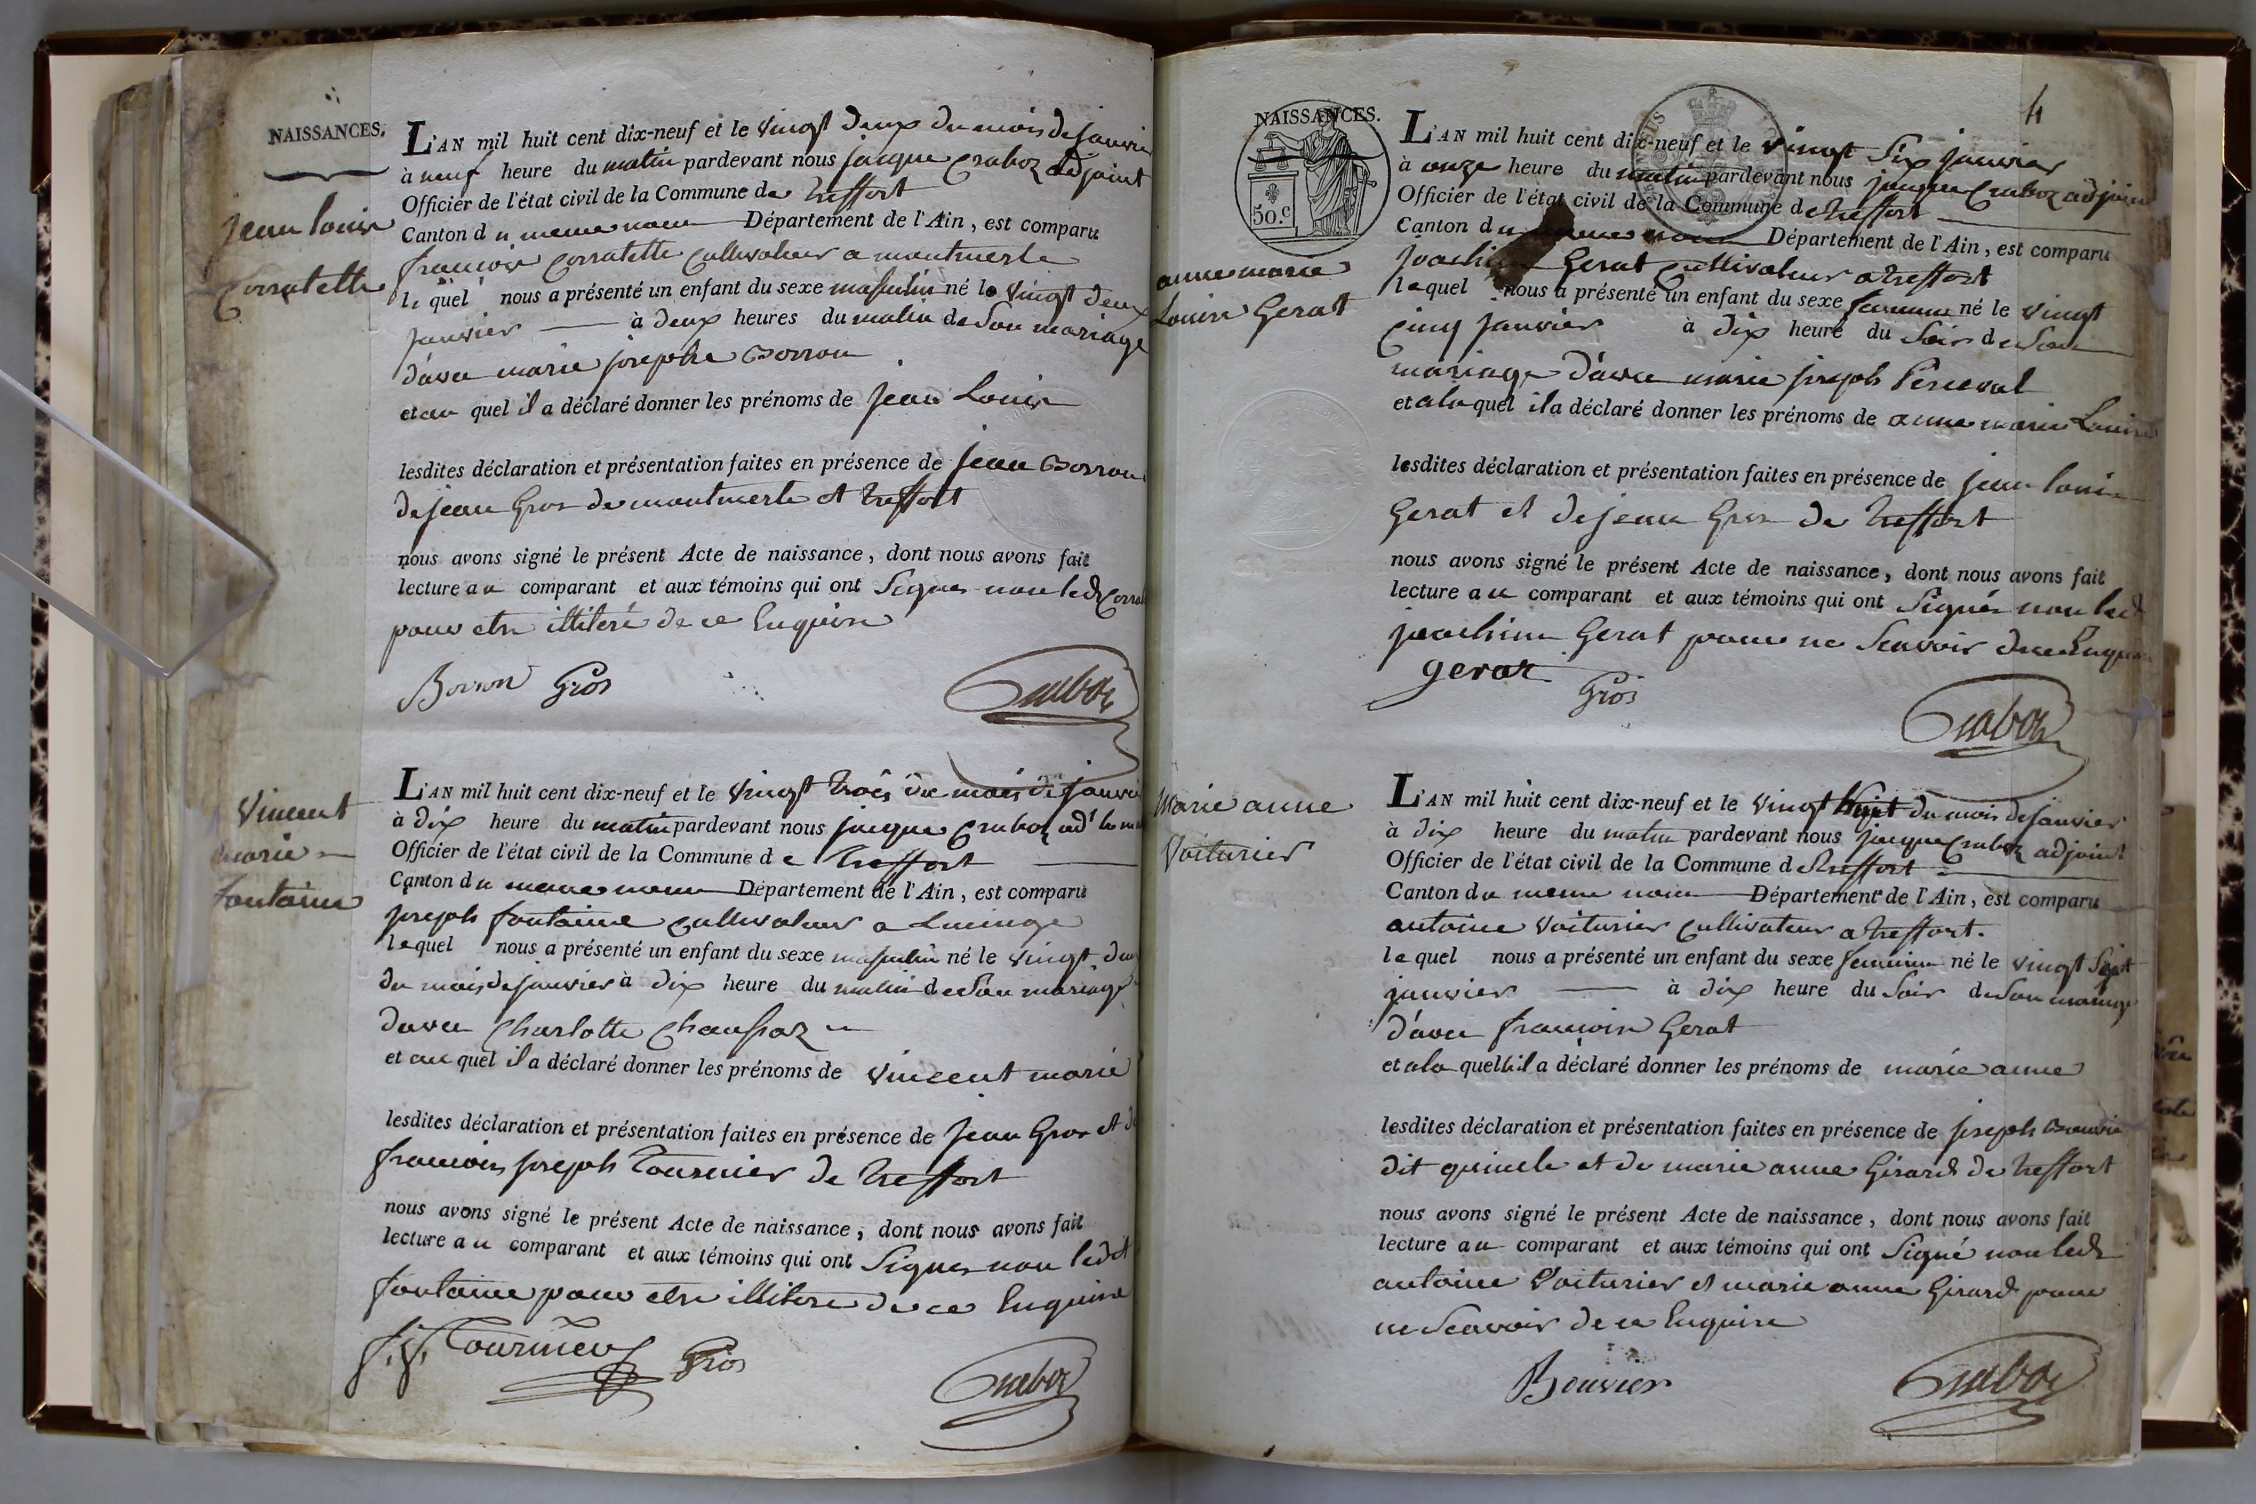 NAISSANCES.
jean louis
Corratette
L'AN mil huit cent dix-neuf et le vingt deux du mois de janvier
à neuf heure du matin pardevant nous jacque Craboz adjoint
Officier de l'état civil de la Commune de treffort
Canton du meme nom Département de l'Ain, est comparu
francois corratette cultivateur a montmerle
lequel nous a présenté un enfant du sexe masculin né le vingt deux
janvier à deux heures du matin de Son mariage
d'avec marie josephe Borron
et au quel il a déclaré donner les prénoms de jean Louis
lesdites déclaration et présentation faites en présence de jean Borron
de jean Gros de montmerle et treffort
nous avons signé le présent Acte de naissance, dont nous avons fait
lecture au comparant et aux témoins qui ont Signes non ledt
pour etre illiteré de ce Enquire
Borron Gros Craboz
Vincent
marie
fontaine
L'AN mil huit cent dix-neuf et le vingt trois du mois de janvier
à dix heure du matin pardevant nous jacque Craboz adt
Officier de l'état civil de la Commune de treffort
Canton du meme nom Département de l'Ain, est comparu
joseph fontaine cultivateur a
lequel nous a présenté un enfant du sexe masculin né le vingt deux
du mois de janvier à dix heure du matin de Son mariage
davec Charlotte
et au quel il a déclaré donner les prénoms de vincent marie
lesdites déclaration et présentation faites en présence de jean Gros et de
francois joseph tournier de treffort
nous avons signé le présent Acte de naissance, dont nous avons fait
lecture au comparant et aux témoins qui ont Signes non ledit
fontaine pour etre illitere de ce Enquire
f. j. Tournier Gros Craboz
4
NAISSANCES.
50.c
anne marie
Louise Gerat
L'AN mil huit cent dix-neuf et le vingt Six janvier
à onze heure du matin pardevant nous jacque Craboz adjoint
Officier de l'état civil de la Commune de treffort
Canton du meme nom Département de l'Ain, est comparu
joachim Gerat cultivateur a treffort
lequel nous a présenté un enfant du sexe feminin né le vingt
cinq janvier à dix heure du Soir de Son
mariage d'avec marie joseph Perceval
et a la quel il a déclaré donner les prénoms de anne marie Louise
lesdites déclaration et présentation faites en présence de jean louis
Gerat et de jean Gros de treffort
nous avons signé le présent Acte de naissance, dont nous avons fait
lecture au comparant et aux témoins qui ont Signés non ledt
joachim Gerat pour ne Scavoir de ce Enquire
gerat Gros Craboz
Marie anne
Voiturier
L'AN mil huit cent dix-neuf et le vingt huit du mois de janvier
à dix heure du matin pardevant nous jacque Craboz adjoint
Officier de l'état civil de la Commune de treffort
Canton du meme nom Département de l'Ain, est comparu
antoine Voiturier cultivateur a treffort.
lequel nous a présenté un enfant du sexe feminin né le vingt Sept
janvier à dix heure du Soir de Son mariage
d'avec francoise Gerat
et a la quelle il a déclaré donner les prénoms de marie anne
lesdites déclaration et présentation faites en présence de joseph Bouvier
dit et de marie anne Girard de treffort
nous avons signé le présent Acte de naissance, dont nous avons fait
lecture au comparant et aux témoins qui ont Signé non ledt
antoine Voiturier et marie anne Girard pour
ne Scavoir de ce Enquire
Bouvier Craboz